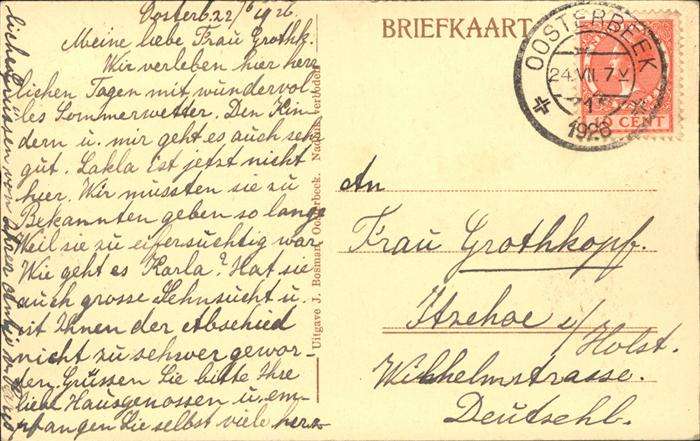 Oosterb. 22/6 1926.
Meine liebe Frau Grothk.
Wir verleben hier herr
lichen Tagen mit wundervol-
les Sommerwetter. Den Kin-
dern u. mir geht es auch sehr
gut. Lakla ist jetzt nicht
hier. Wir mussten sie zu
Bekannten geben so lange
Weil sie zu eifersuchtig war
Wie geht es Karla? Hat sie
auch grosse Sehnsucht u.
ist Ihnen der Abschied
nicht zu schwer gewor-
den. Grüssen Sie bitte Ihre
liebe Hausgenossen u. em-
pfangen Sie selbst viele herz-
lichen grüssen von Ihrer Antje
Uitgave J. Bosman, Oosterbeek. Nadruk verboden
BRIEFKAART
OOSTERBEEK
24.VII.7V
1926
CENT
An
Frau Grothkopf.
Itzehoe i/
Holst.
Wilhelmstrasse.
Deutschl.